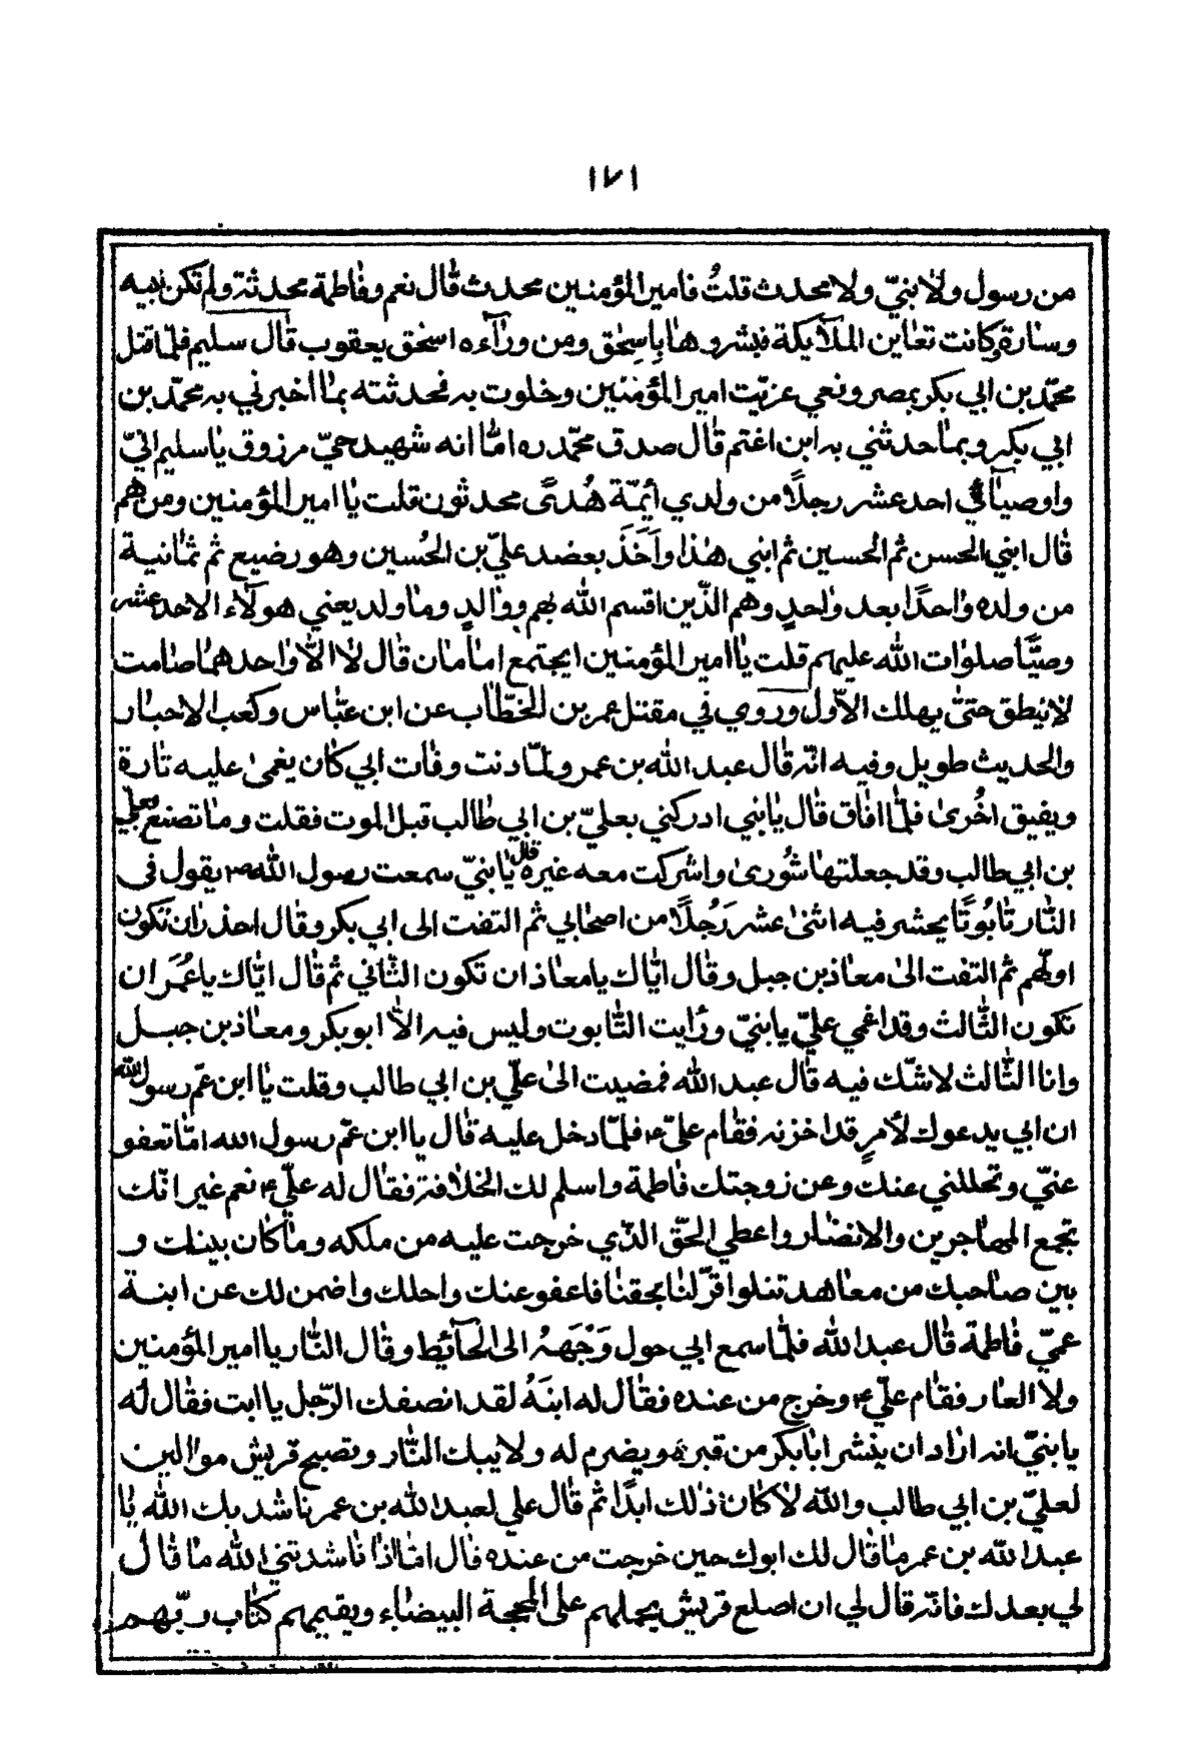 ١٧١
من رسول ولا نبيّ ولا محدث قلتُ فامير المؤمنين محدث قال نعم وفاطمة محدثة ولم تكن نبيه
وسارة وكانت تعاين الملآيكة فبشروها باسحٰق ومن ورآءه اسحٰق يعقوب قال سليم فلمّا قتل
محمّد بن ابي بكر بمصر ونعي عزيّت امير المؤمنين وخلوت به فحدثته بما اخبرني به محمّد بن
ابي بكر وبما حدثني به ابن اغتم قال صدق محمّد ره امّا انه شهيد حيّ مرزوق يا سليم انيّ
واوصيآئي احد عشر رجلًا من ولدي أيمّة هُدىً محدثون قلت يا امير المؤمنين ومن هم
قال ابني الحسن ثم الحسين ثم ابني هذا وأخَذَ بعضد عليّ بن الحُسين وهو رضيع ثم ثمانية
من ولده واحدًا بعد واحدٍ وهم الذّين اقسم الله بهم ووالدٍ وما ولد يعني هولآء الاحد عشر
وصيًّا صلوات الله عليهم قلت يا امير المؤمنين ايجتمع امامان قال لا الّا واحدهما صامت
لا ينطق حتىّ يهلك الاوّل وروي في مقتل عمر بن الخطّاب عن ابن عبّاس وكعب الاحبار
والحديث طويل وفيه انّه قال عبد الله بن عمر ولمّا دنت وفات ابي كان يغمىٰ عليه تارة
ويفيق اخُرىٰ فلمّا افاق قال يا بني ادركني بعليّ بن ابي طالب قبل الموت فقلت وما تصنع بعليّ
بن ابي طالب وقد جعلتها شُورىٰ واشركت معه غيره قال يا بنيّ سمعت رسول الله ص يقول في
النّار تابُوتًا يحشر فيه اثنىٰ عشر رَجُلًا من اصحابي ثم التفت الى ابي بكر وقال احذر ان تكون
اولّهم ثم التفت الىٰ معاذ بن جبل وقال ايّاك يا معاذ ان تكون الثّاني ثم قال ايّاك يا عُمَر ان
تكون الثّالث وقد اغمي عليّ يا بنيّ ورأيت التّابوت وليس فيه الّا ابو بكر ومعاذ بن جبل
وانا الثّالث لا شّك فيه قال عبد الله فمضيت الىٰ عليّ بن ابي طالب وقلت يا ابن عمّ رسول الله
ان ابي يدعوك لأمرٍ قد احزنه فقام عليّ ع فلمّا دخل عليه قال يا ابن عمّ رسول الله امّا تعفو
عنيّ وتحللني عنك وعن زوجتك فاطمة واسلم لك الخلافة فقال له عليّ ع نعم غير انّك
تجمع المهاجرين والانصار واعطي الحّق الذّي خرجت عليه من ملكه وما كان بينك و
بين صاحبك من معاهدتنا واقرّ لنا بحقنا فاعفو عنك واحلك واضمن لك عن ابنة
عميّ فاطمة قال عبد الله فلمّا سمع ابي حول وَجْهَهُ الى الحآئط وقال النّار يا امير المؤمنين
ولا العار فقام عليّ ع وخرج من عنده فقال له ابنَهُ لقد انصفك الرّجل يا ابت فقال له
يا بنيّ انه اراد ان ينشر ابا بكر من قبره ويضرم له ولابيك النّار وتصبح قريش موالين
لعليّ بن ابي طالب والله لا كان ذلك ابدًا ثم قال علي لعبد الله بن عمر ناشدتك الله يا
عبد الله بن عمر ما قال لك ابوك حين خرجت من عنده قال امّا اذا ناشدتني الله ما قال
لي بعدك فانّه قال لي ان اصلع قريش يحملهم على المحجة البيضاء ويقيمهم كتاب ربّهم